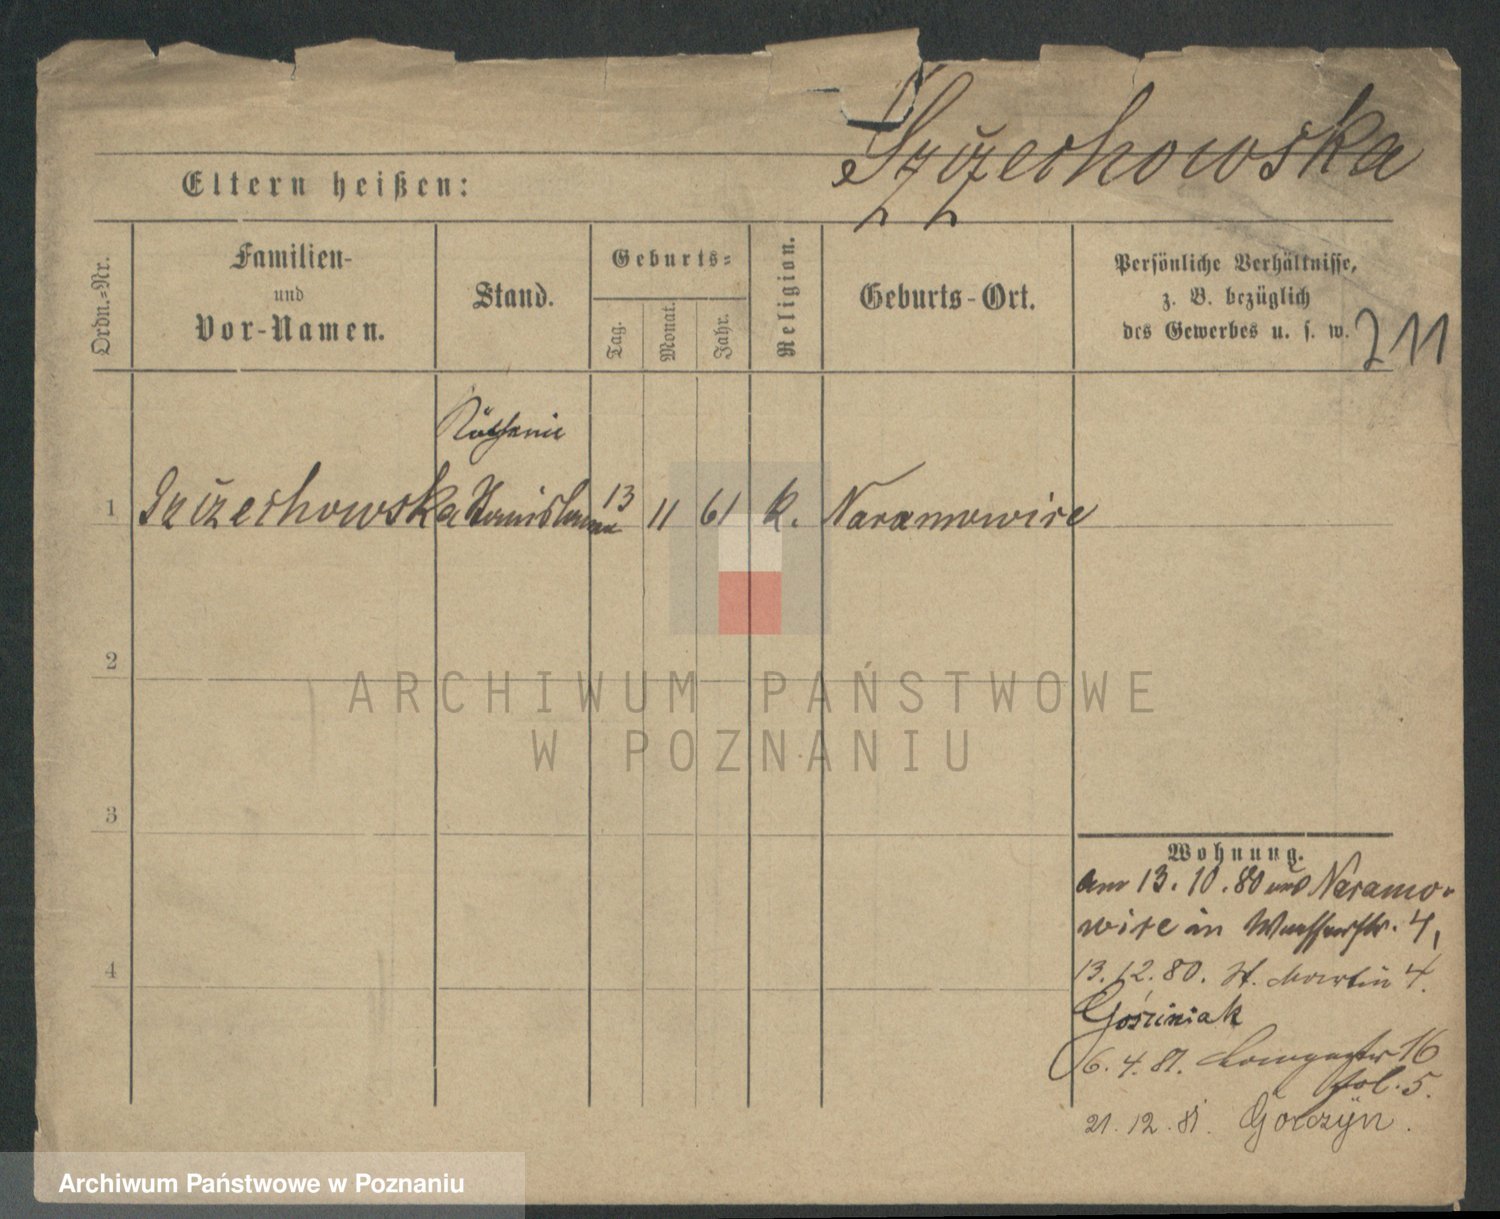 Szizechowska
Eltern heißen:
Ordn.-Nr.
Familien-
und
Vor-Namen.
Stand.
Geburts-
Tag.
Monat.
Jahr.
Religion.
Geburts-Ort.
Persönliche Verhältnisse,
z. B. bezüglich
des Gewerbes u. s. w.
211
Köchin
1 Szizechowska Stanislawa 13 11 61 k. Naramowice
2
3
4
Wohnung.
am 13.10.80 aus Naramo-
wice in Wasserstr. 4,
13.12.80. St. Martin 4.
Gościniak
6.4.81. 16
pol. 5.
21.12.81. Gorczyn.
ARCHIWUM PAŃSTWOWE
W POZNANIU
Archiwum Państwowe w Poznaniu